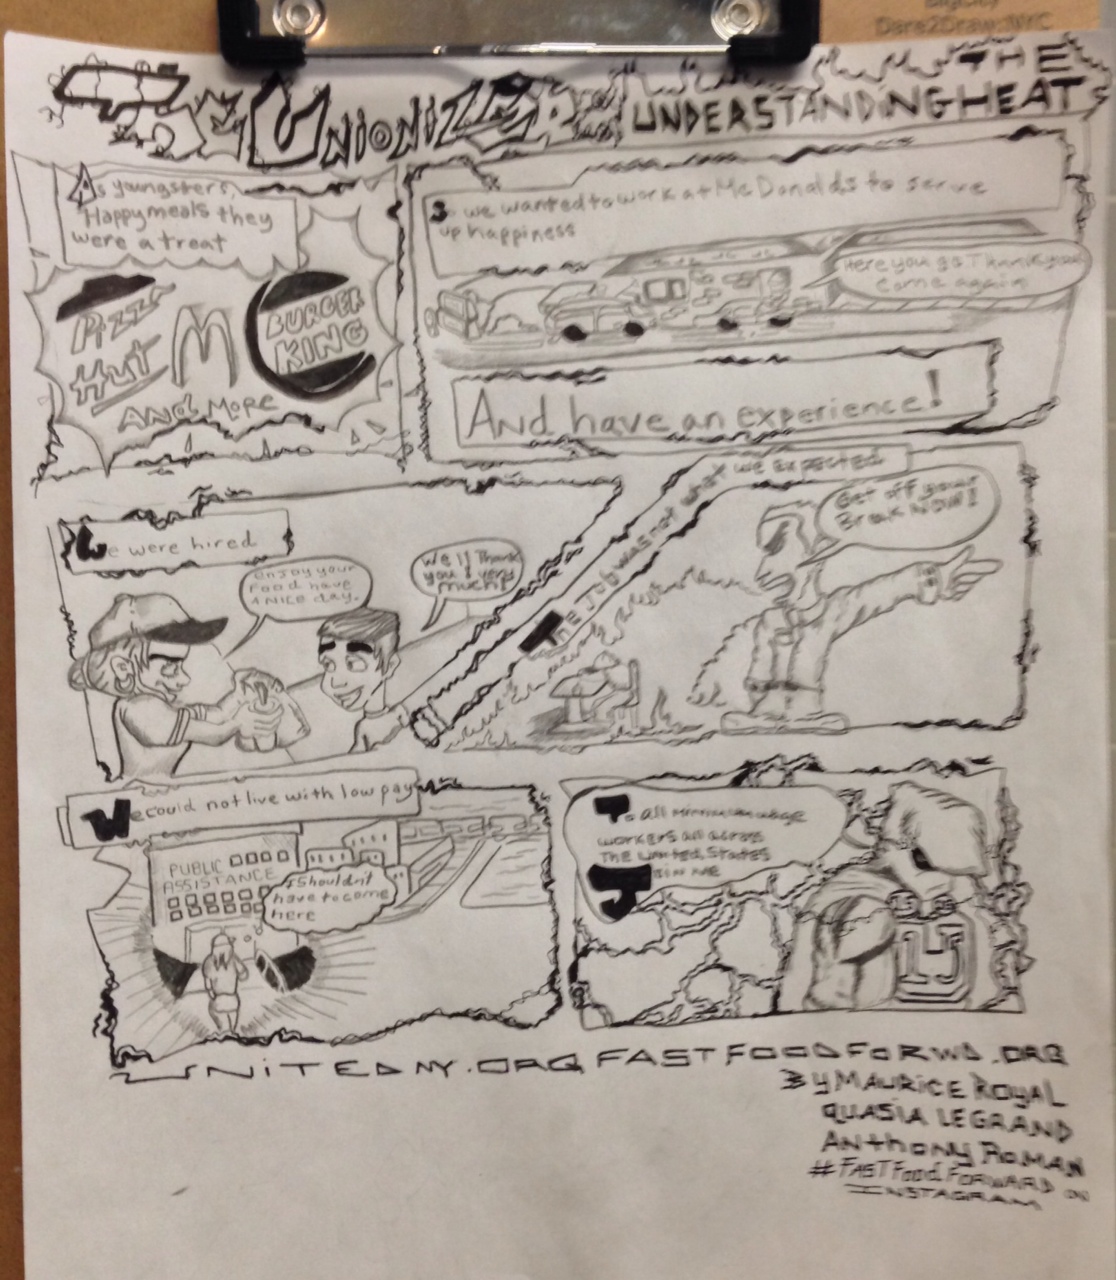 Dare2Draw
UNIONIZE
THE
UNDERSTANDING HEAT
As youngsters,
Happymeals they
were a treat
Pizza
Hut
M
BURGER
KING
AND MORE
So we wanted to work at McDonalds to serve
up happiness
Here you go Thank you
come again
And have an experience!
We were hired
enjoy your
food have
a NICE day.
Well Thank
you! very
much!
The Job was not what we expected
Get off your
Break NOW!
We could not live with low pay
PUBLIC
ASSISTANCE
I Shouldn't
have to come
here
To all minimum wage
workers all across
The United States
Join me
UNITEDNY.ORG FASTFOODFORWD.ORG
By MAURICE ROYAL
QUASIA LEGRAND
Anthony ROMAN
#FASTFood FORWARD on
INSTAGRAM